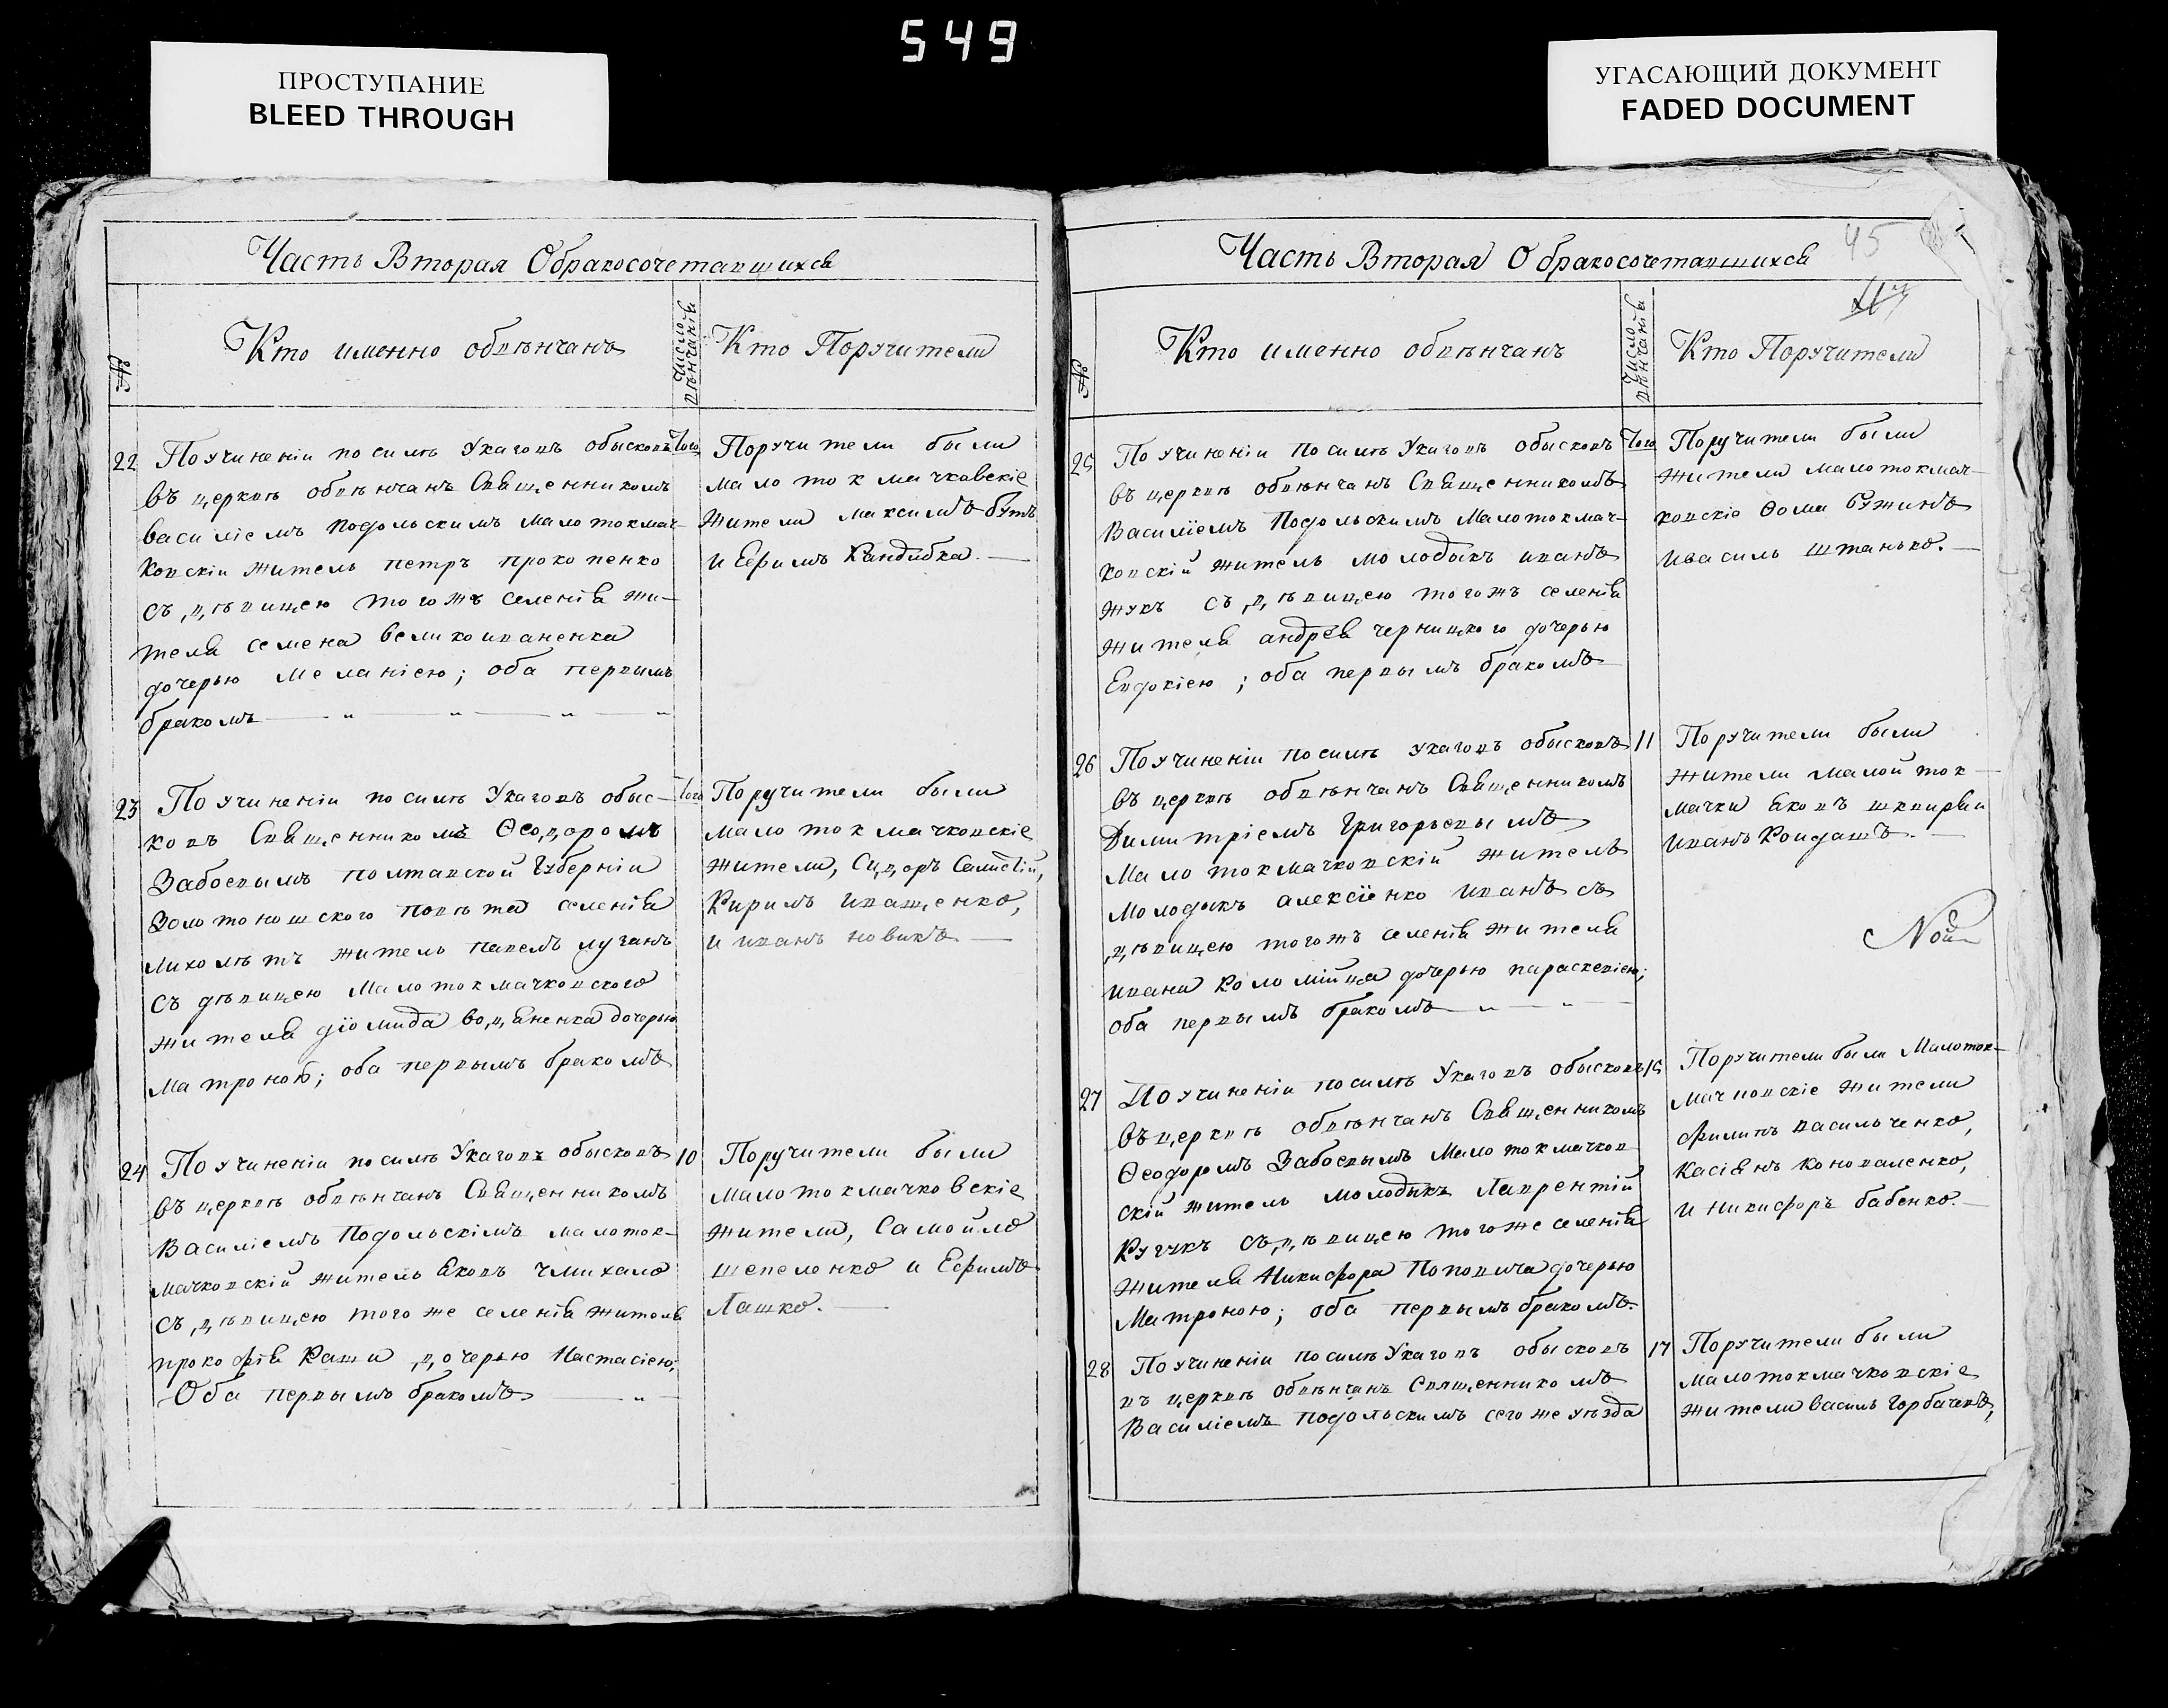 549
ПРОСТУПАНИЕ
BLEED THROUGH
УГАСАЮЩИЙ ДОКУМЕНТ
FADED DOCUMENT
Часть Вторая Обракосочетавшихся
№
Кто именно обвѣнчанъ
Число вѣнчанія
Кто Поручители
22
По учиненіи по силѣ Указовъ обысковъ
въ церквѣ обвѣнчанъ Священникомъ
василіемъ подольскимъ малотокмач-
ковскіи житель петръ прокопенко
съ дѣвицею тогожъ селенія жи-
теля семена великоиваненка
дочерью Меланіею; оба первымъ
бракомъ
Того
Поручители были
малотокмачковскіе
жители максимъ бутъ
и Ефимъ Кандибка.
23
По учиненіи по силѣ Указовъ обыс-
ковъ Священникомъ Ѳеодоромъ
Забоевымъ полтавской Губерніи
Золотоношского повѣта селенія
лихолѣтъ житель павелъ луганъ
съ дѣвицею Малотокмачковского
жителя діомида водяненка дочерью
Матроною; оба первымъ бракомъ
Того
Поручители были
малотокмачковскіе
жители, Сидоръ
Кирилъ иващенко,
и иванъ новикъ
24
По учиненіи по силѣ Указовъ обысковъ
въ церквѣ обвѣнчанъ Священникомъ
Василіемъ Подольскімъ малоток-
мачковскій житель Яковъ Чмихало
съ дѣвицею того же селенія жителя
прокофія Каши дочерью Настасіею;
Оба первымъ бракомъ
10
Поручители были
малотокмачковскіе
жители, Самойло
шепеленко и Ефимъ
Лашко.
Часть Вторая Обракосочетавшихся
45
№
Кто именно обвѣнчанъ
Число вѣнчанія
Кто Поручители
25
По учиненіи по силѣ Указовъ обысковъ
въ церквѣ обвѣнчанъ Священникомъ
Василіемъ Подольскимъ Малотокмач-
ковскій житель молодыкъ иванъ
жукъ съ дѣвицею тогожъ селенія
жителя андрея черницкого дочерью
Евдокіею; оба первымъ бракомъ
Того
Поручители были
жители малотокмач-
ковскіе Ѳома Ружинъ
ивасиль штанько.
26
По учиненіи по силѣ указовъ обысковъ
въ церквѣ обвѣнчанъ Священникомъ
Димитріемъ Григорьевымъ
Малотокмачковскій житель
Молодыкъ алексіенко иванъ съ
дѣвицею тогожъ селенія жителя
ивана Коломійца дочерью параскевіею;
оба первымъ бракомъ
11
Поручители были
жители малой ток-
мачки Яковъ шквиря и
иванъ Койдашъ.
27
По учиненіи по силѣ Указовъ обысковъ
въ церквѣ обвѣнчанъ Священникомъ
Ѳеодоромъ Забоевымъ Малотокмачков
скій житель молодыкъ Лаврентій
Кугукъ съ дѣвицею того же селенія
жителя Никифора Поповича дочерью
Матроною; оба первымъ бракомъ.
15
Поручители были Малоток-
мачковскіе жители
филипъ васильченко,
Касіянъ Коноваленко,
и Никифоръ бабенко.
28
По учиненіи по силѣ Указовъ обысковъ
въ церквѣ обвѣнчанъ Священникомъ
Василіемъ подольскимъ сего же уѣзда
17
Поручители были
малотокмачковскіе
жители василь Горбаченко,